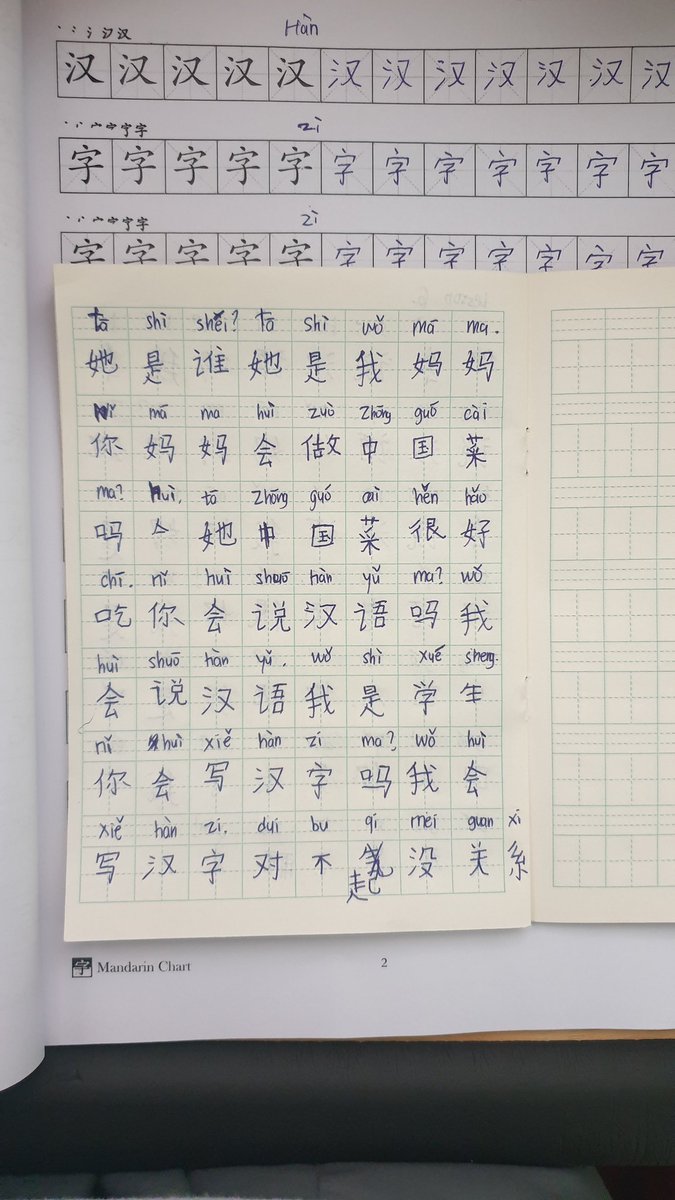 丶 冫 氵 汈 汉 Hàn
汉 汉 汉 汉 汉 汉 汉 汉 汉 汉 汉 汉
丶 丷 宀 宁 字 zì
字 字 字 字 字 字 字 字 字 字 字 字
丶 丷 宀 宁 字 zì
字 字 字 字 字 字 字 字 字 字 字 字
tā shì shéi? tā shì wǒ mā ma.
她 是 谁 她 是 我 妈 妈
nǐ mā ma huì zuò Zhōng guó cài
你 妈 妈 会 做 中 国 菜
ma? huì, tā Zhōng guó cài hěn hǎo
吗 亼 她 中 国 菜 很 好
chī. nǐ huì shuō hàn yǔ ma? wǒ
吃 你 会 说 汉 语 吗 我
huì shuō hàn yǔ. wǒ shì xué sheng.
会 说 汉 语 我 是 学 生
nǐ huì xiě hàn zì ma? wǒ huì
你 会 写 汉 字 吗 我 会
xiě hàn zì. dui bu qi méi guan xi
写 汉 字 对 不 起 没 关 系
字 Mandarin Chart 2